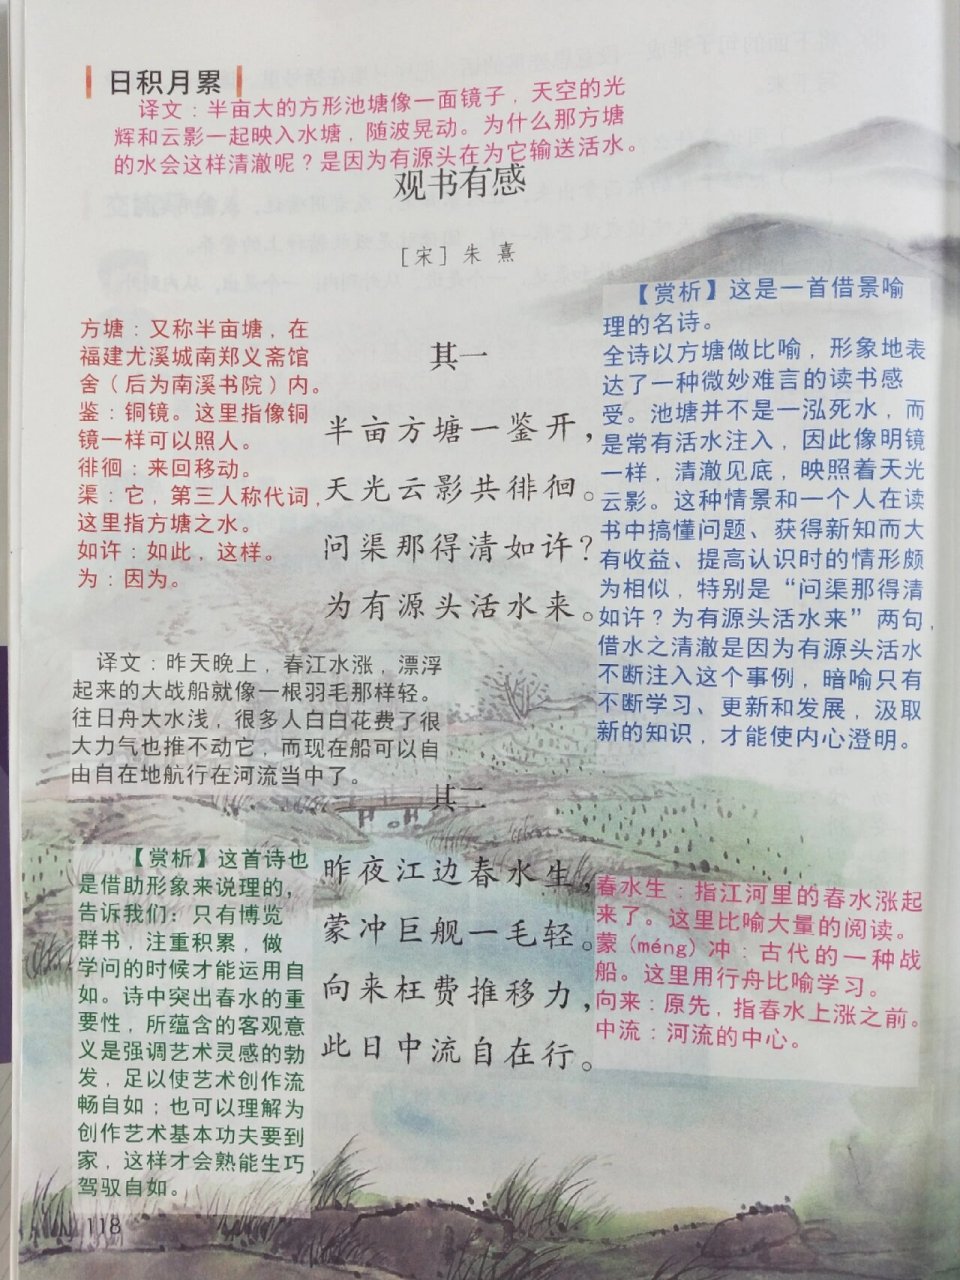 日积月累
译文：半亩大的方形池塘像一面镜子，天空的光
辉和云影一起映入水塘，随波晃动。为什么那方塘
的水会这样清澈呢？是因为有源头在为它输送活水。
观书有感
［宋］朱 熹
方塘：又称半亩塘，在
福建尤溪城南郑义斋馆
舍（后为南溪书院）内。
鉴：铜镜。这里指像铜
镜一样可以照人。
徘徊：来回移动。
渠：它，第三人称代词，
这里指方塘之水。
如许：如此，这样。
为：因为。
其一
半亩方塘一鉴开，
天光云影共徘徊。
问渠那得清如许？
为有源头活水来。
【赏析】这是一首借景喻
理的名诗。
全诗以方塘做比喻，形象地表
达了一种微妙难言的读书感
受。池塘并不是一泓死水，而
是常有活水注入，因此像明镜
一样，清澈见底，映照着天光
云影。这种情景和一个人在读
书中搞懂问题、获得新知而大
有收益、提高认识时的情形颇
为相似，特别是“问渠那得清
如许？为有源头活水来”两句，
借水之清澈是因为有源头活水
不断注入这个事例，暗喻只有
不断学习、更新和发展，汲取
新的知识，才能使内心澄明。
译文：昨天晚上，春江水涨，漂浮
起来的大战船就像一根羽毛那样轻。
往日舟大水浅，很多人白白花费了很
大力气也推不动它，而现在船可以自
由自在地航行在河流当中了。
其二
昨夜江边春水生，
蒙冲巨舰一毛轻。
向来枉费推移力，
此日中流自在行。
【赏析】这首诗也
是借助形象来说理的，
告诉我们：只有博览
群书，注重积累，做
学问的时候才能运用自
如。诗中突出春水的重
要性，所蕴含的客观意
义是强调艺术灵感的勃
发，足以使艺术创作流
畅自如；也可以理解为
创作艺术基本功夫要到
家，这样才会熟能生巧，
驾驭自如。
春水生：指江河里的春水涨起
来了。这里比喻大量的阅读。
蒙（méng）冲：古代的一种战
船。这里用行舟比喻学习。
向来：原先，指春水上涨之前。
中流：河流的中心。
118